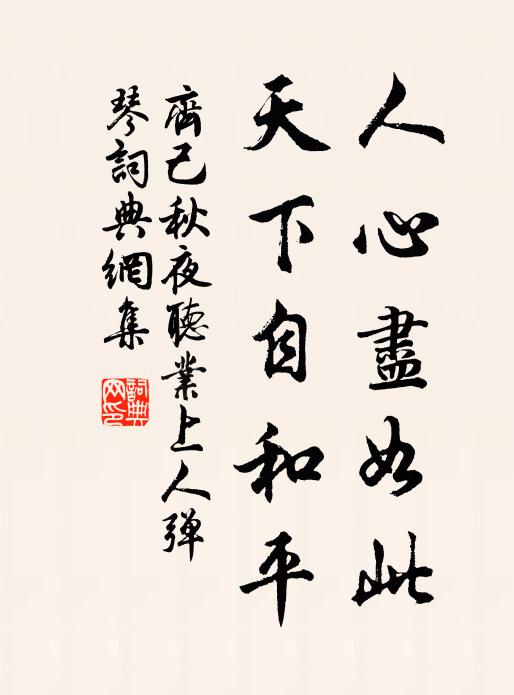 人心盡如此
天下自和平
齊己秋夜聽業上人彈
琴詞典網集
詞典网印